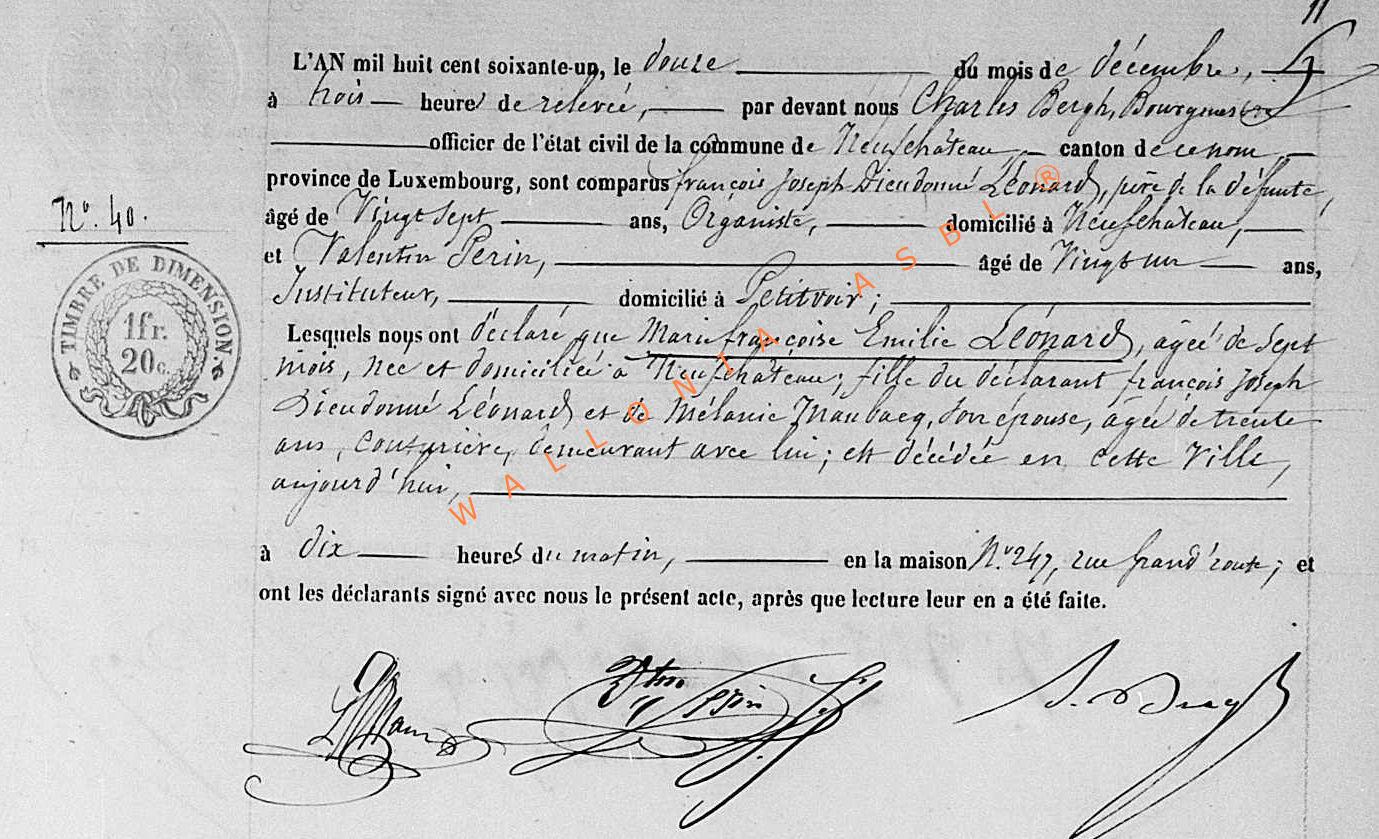 11
L'AN mil huit cent soixante-un, le douze du mois de décembre,
à trois heures de relevée, par devant nous Charles Bergh, Bourgmestre
officier de l'état civil de la commune de Neufchâteau, canton de ce nom,
province de Luxembourg, sont comparus françois Joseph Dieudonné Léonard, père de la défunte,
âgé de Vingt Sept ans, Organiste, domicilié à Neufchâteau,
N° 40.
et Valentin Perin, âgé de Vingt un ans,
Instituteur, domicilié à Petitvoir;
TIMBRE DE DIMENSION.
1 fr.
20 c.
Lesquels nous ont déclaré que Marie françoise Emilie Léonard, agée de Sept
mois, née et domiciliée à Neufchâteau; fille du déclarant françois Joseph
Dieudonné Léonard et de Mélanie Maubacq, Son épouse, agée de trente
ans, Couturière, demeurant avec lui; est décédée en cette Ville,
aujourd'hui,
à dix heures du matin, en la maison N° 247, rue Grand'route; et
ont les déclarants signé avec nous le présent acte, après que lecture leur en a été faite.
WALLONIA ASBL ®